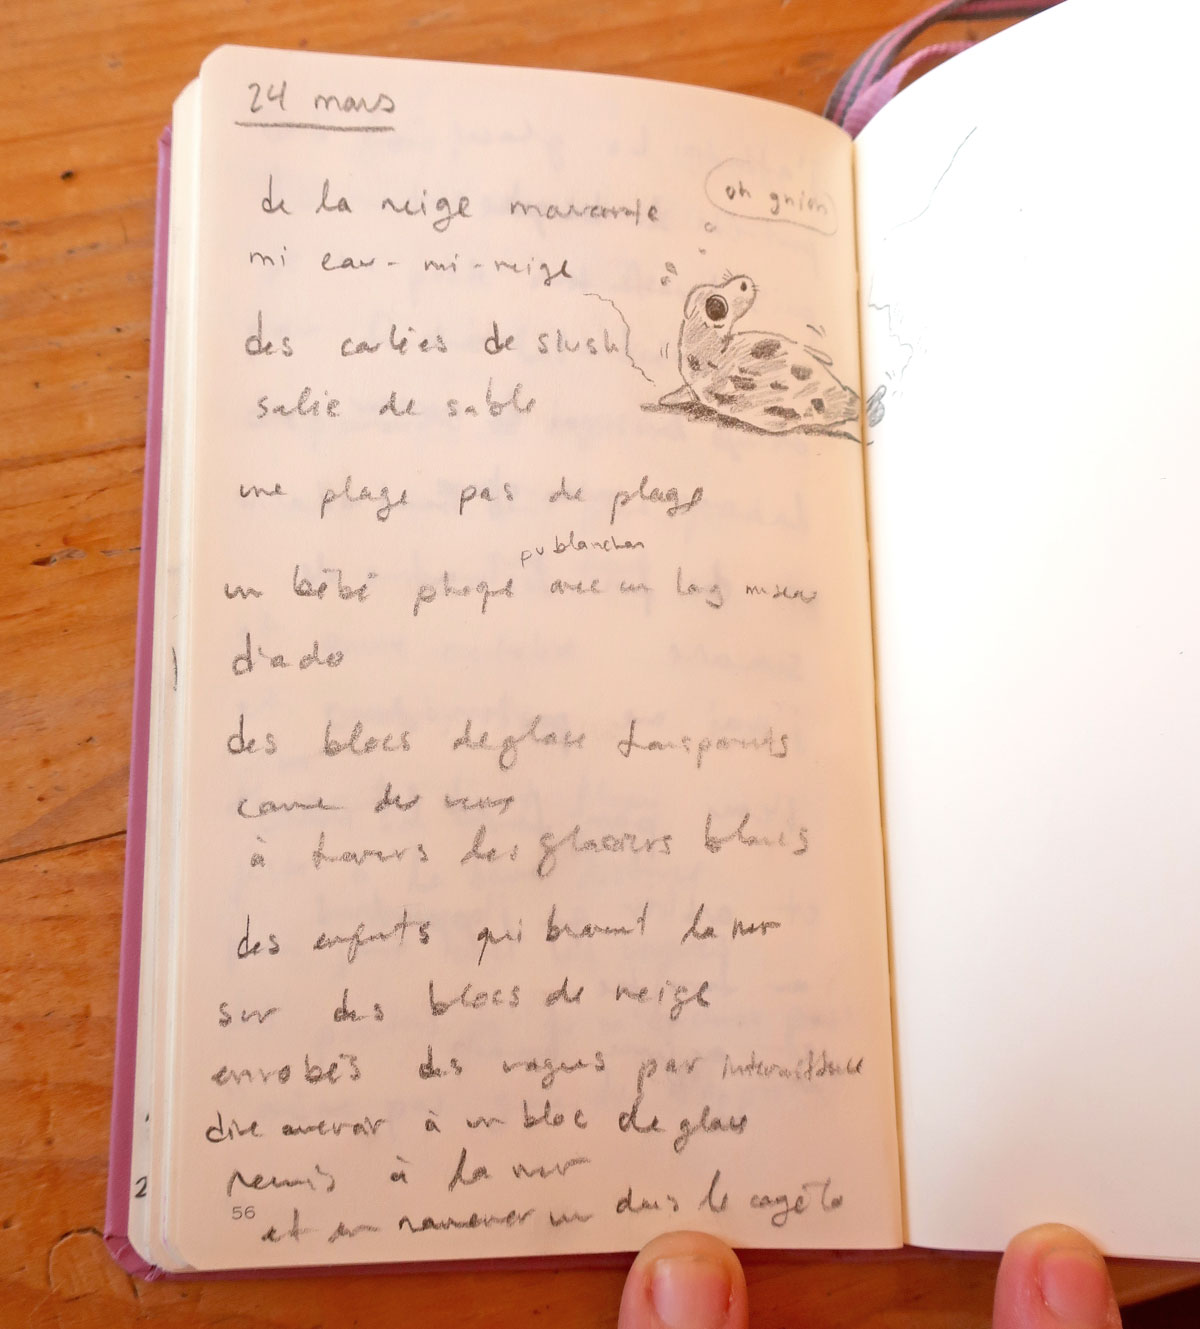 24 mars
de la neige mouvante
oh gnion
mi eau - mi - neige
des carrés de slush
salie de sable
une plage pas de plage
pu blanchon
un bébé phoque avec un long museau
d'ado
des blocs de glace transparents
comme des
à travers les glaciers blancs
des enfants qui bravent la mer
sur des blocs de neige
enrobés des vagues par intermittence
dire au revoir à un bloc de glace
remis à la mer
56
et en ramener un dans le
2